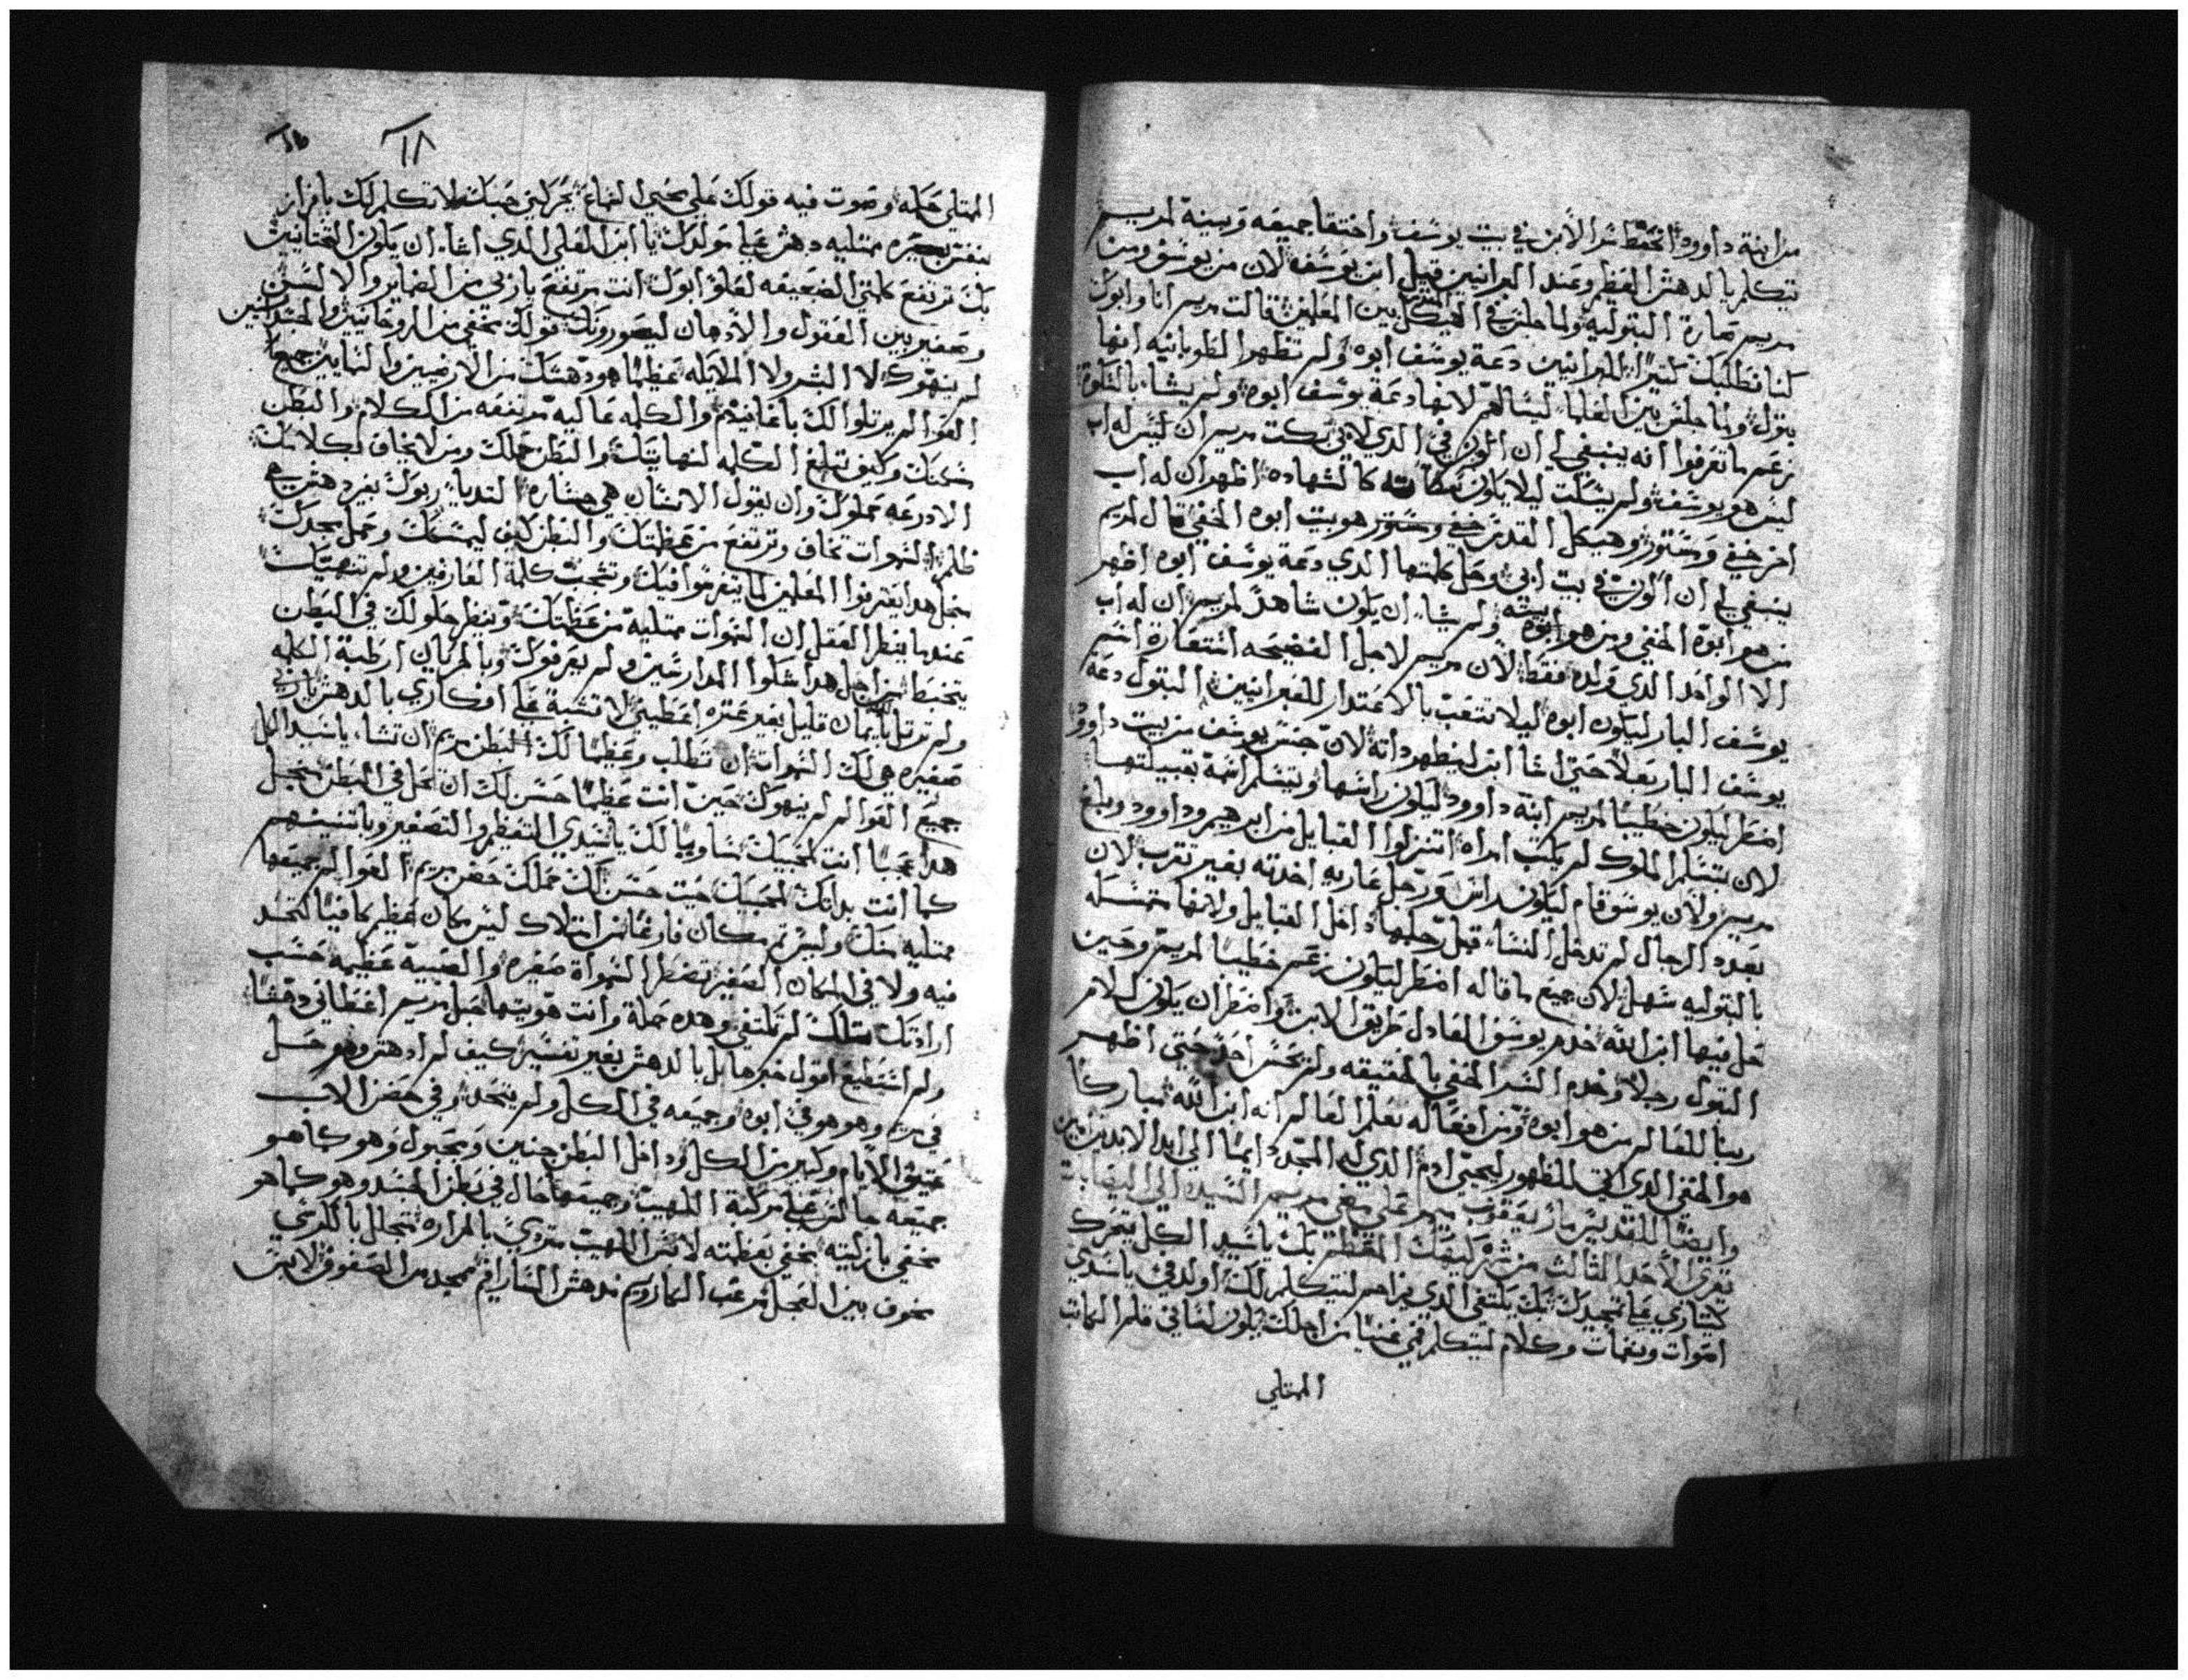 من ابنة داوود انحفظ سر الابن في بيت يوسف واختفا جميعه وبسنة لمريم
تتكلم بالدهش العظيم وعند العبرانيين قيل ابن يوسف لان من يوسف ومن
مريم صارة البتوليه ولما جلس في الهيكل بين المعلمين قالت مريم انا وابوك
كنا نطلبك كتيرًا للعبرانيين دعة يوسف ابوه ولم تظهر الطوبانيه انها
بتول ولما جلس بين العلما ليسالهم لانها دعة يوسف ابوه ولم يشا بالتلوة
زعم ما تعرفوا انه ينبغي لي ان اكون في الدي لابي سكتت مريم ان ليس له اب
ليس هو يوسف ولم يسكت ليلا يكون كالشهاده اظهر ان له اب
اخر خفي ومستور وهيكل القدس هو بيت ابوه الخفي قال لمريم
ينبغي لي ان اكون في بيت ابي وحل كلمتها الدي دعة يوسف ابوه اظهر
من هو ابوه الخفي ومن هو ابوه بيته ولم يشا ان يكون شاهدًا لمريم ان له اب
الا الواحد الدي ولده فقط لان مريم لاجل الفضيحه استعارة اسم
يوسف البار ليكون ابوه ليلا تتعب بالاعتدار للعبرانيين البتول دعة
يوسف البار بعلاً حتى اشا ابن ليظهر داته لان جنس يوسف من بيت داوود
امتطر ليكون خطيبًا لمريم ابنة داوود ليكون راسها وتتسلم اسمه بقبيلتها
لان بتسلم الملوك لم يكتب امراه اتنزلوا القبايل من ابرهيم وداوود وبلغ
مريم ولان يوسف قام ليكون راس ورجل عاريه اخدته بغير تقرب لان
بعدد الرجال لم تدخل النسا قبل رجلها داخل القبايل ولانها متمسله
بالبتوليه سهل لان جميع ما قاله امتطر ليكون زعم خطيبًا لمريم وحين
حل فيها ابن الله خدم يوسف العادل طريق الابن وامتطر ان يكون لام
البتول رجلاً وخدم السر الخفي بالحقيقه ولم يحس احد حتى اظهر
ربنا للعالم من هو ابوه ومن افعاله تعلم العالم انه ابن الله مباركًا
هو الخفي الدي اتي للظهور ليحيي ادم الدي له المجد دايمًا الي ابد الابدين امين
وايضًا للقديس مار يعقوب ميمر على مضي مريم السيده الي اليصابات
تقري الاحد الثالت من كيهك المعظم بك يا سيد الكل يتحرك
كيتاري على تمجيدك بك يكتفي الدي يزاحم ليتكلم لك اولد في يا سيدي
اصوات ونغمات وكلام ليتكلم فمي غنيًا من اجلك يكون لساني قلم الكاتب
الممتلي
١٨
الممتلي حكمه وصوت فيه قولك على يحيى السماع يحركني حبك لاتكلم لك بافراز
بنفس بصيره ممتليه دهش على مولدك يا ابن العلي الدي اشا ان يكون التحتانيين
بك ترتفع كلمتي الضعيفه لعلو ابوك انت مرتفع يا ربي من الضماير والالسن
وصغير بين العقول والادهان ليصوروك قولك مخفي من الروحانيين والجسدانيين
لم ينهوك لا البشر ولا الملايكه عظيمًا هو دهشك من الارضيين والسمايين جميعًا
العوالم يرتلوا لك باغانيهم والكلمه عاليه مرتفعه من الكلام والبطن
سكنك وكيف تبلغ الكلمه لنهايتك والبطن حملك ومن لا يخاف لكلامك
الادرعه حملوك وان يقول الانسان هي جساره التديا ربوك بغير دهش هي
ظلم السموات تخاف وترتفع من عظمتك والبطن كيف ليمسكك وحمل مجدك
منجل هدا يعترفوا المعلمين لما يتفرسوا فيك وتتحيب كلمة العارفين ولم تنهيك
عندما ينظر العقل ان السموات ممتليه من عظمتك وينظر حلولك في البطن
يتخبط من اجل هدا شكوا المدارسين ولم يعرفوك وبالمريان ارطبة الكلمه
ولم ترتل بايمان قليل بغير عتره اعطيني لاتشبة على افكاري بالدهش يا ربي
صغيره هي لك السموات ان تطلب وعظيمًا لك البطن مريم ان تشا يا سيد الكل
جميع العوالم لم ينهوك حين انت عظيمًا حسن لك ان تحل في البطن منجل
هدا عجبًا انت لمحبيك مساويًا لك يا سيدي التعظم والتصغير وباتنينهم
كما انت بداتك لمحبيك حيت حسن لك حملك حضن مريم العوالم جميعها
ممتليه منك وليس تم مكان فارغًا من امتلاك ليس مكان عظيم كافيًا لتحد
فيه ولا في المكان الصغير تضطر السمواة صغره والصبية عظيمه حسب
ارادتك تلك لم تكتفي وهده حملة وانت هويتها حبل مريم اعطاني دهشًا
ولم استطيع اقول خبرها بل بالدهش بغير تفسير كيف لم ادهش وهو حل
في مريم وهو هو في ابوه وجميعه في الكل ولم يتحد وفي حضن الاب
عتيق الايام وكبير من الكل وداخل البطن جنين ومحبول وهو كما هو
جميعه جالس على مركبة اللهيب وجميعها حال في بطن الجسد وهو كما هو
مخفي بازليته مخفي بعظمته لابس اللهيب متردي بالمراره متجلل بالكرسي
مخوف بين العجل مرعب الكاروبيم مدهش السارافيم ممجد من الصفوف الابن